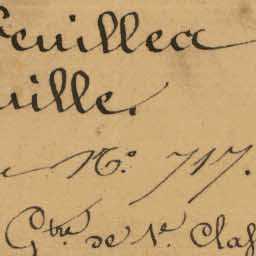 Feuillea
uille.
e N.o 717.
G.tre de 1.e Claſ